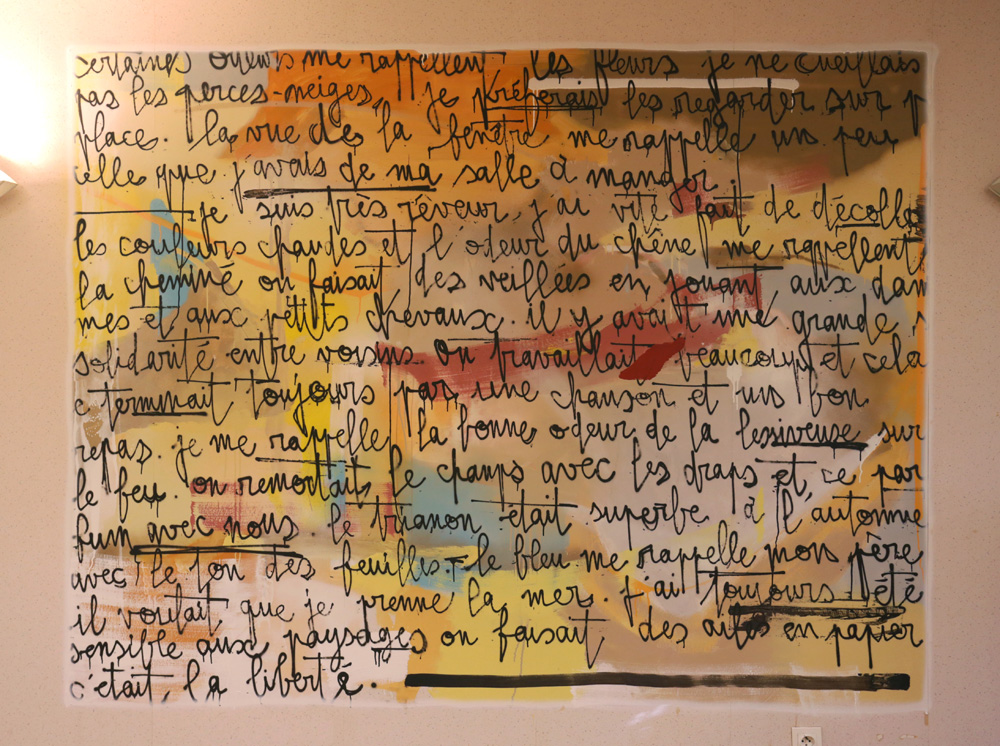 certaines odeurs me rappellent les fleurs je ne cueillais
pas les perces-neiges, je préférais les regarder sur p
place. la vue de la fenêtre me rappelle un peu
celle que j'avais de ma salle à manger
je suis très rêveur, j'ai vite fait de décolle
les couleurs chaudes et l'odeur du chêne me rappellent
la cheminé on faisait des veillées en jouant aux dam
mes et aux petits chevaux. il y avait une grande
solidarité entre voisins. On travaillait beaucoup et cela
c terminait toujours par une chanson et un bon
repas. je me rappelle la bonne odeur de la lessiveuse sur
le feu. on remontait le champs avec les draps et ce par
fum avec nous. le trianon était superbe à l'automne
avec le ton des feuilles - le bleu me rappelle mon père
il voulait que je prenne la mer. j'ai toujours été
sensible aux paysages on faisait des avions en papier
c'était la liberté.